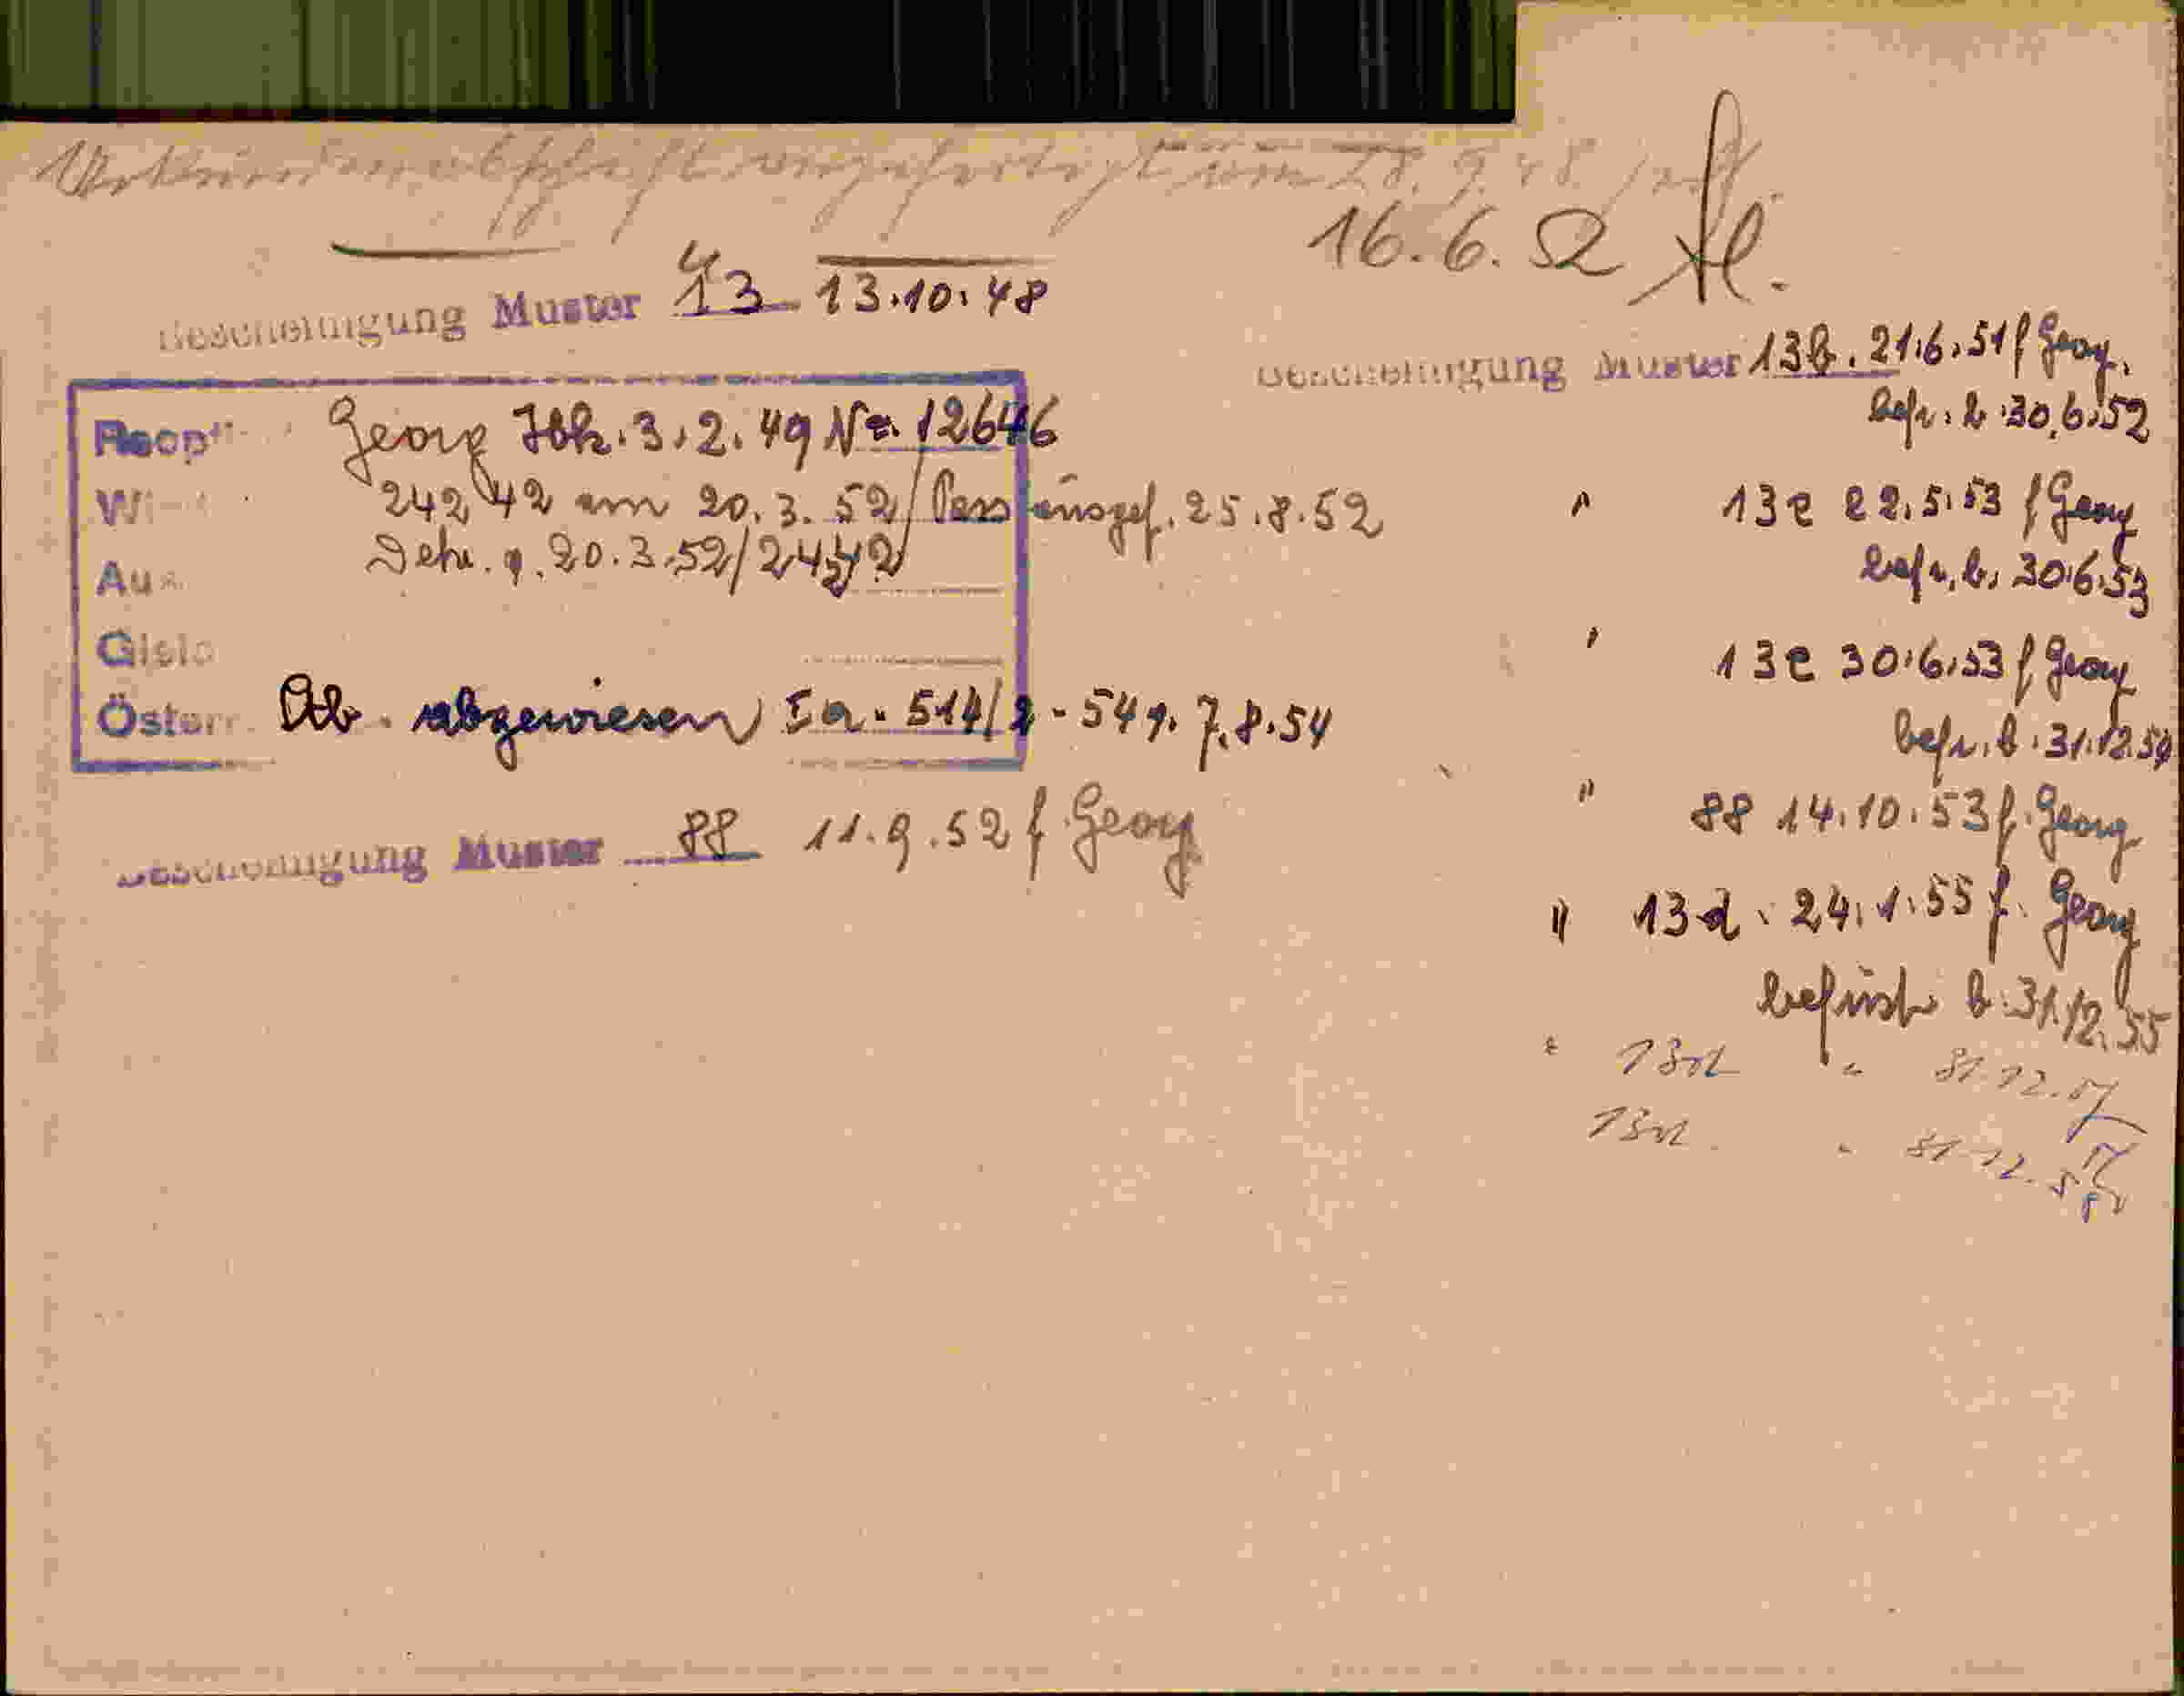 Urkundenabschrift angefertigt am 28.9.48
16.6.52
Bescheinigung Muster 13 13.10.48
Georg Ibk. 3.2.49 Nr. 12646
242 42 am 20.3.52/Pass ausgef. 25.8.52
Au
20.3.52/24242
Österr. Ab. abgewiesen Ia-514/2-54 v. 7.8.54
Bescheinigung Muster 88 11.9.52 f Georg
Bescheinigung Muster 13b. 21.6.51 f Georg.
befr. b. 30.6.52
" 13e 22.5.53 f Georg
befr. b. 30.6.53
" 13e 30.6.53 f Georg
befr. b. 31.12.54
" 88 14.10.53 f. Georg
" 13d. 24.1.55 f. Georg
befrist b. 31.12.55
" 13d " 31.12.57
13d " 31.12.